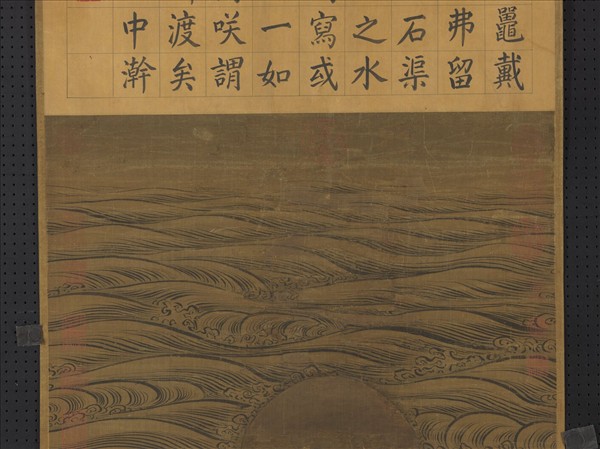 鼉戴
弗留
石渠
之水
寫或
一如
咲謂
渡矣
中澣